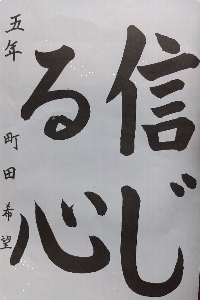 信じ
る心
五年 町田希望